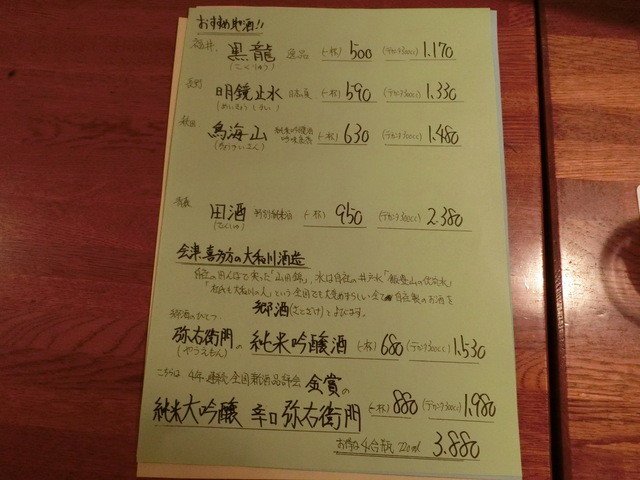 おすすめ地酒!!
福井 黒龍 逸品 (一杯) 500 (デカンタ300cc) 1.170
(こくりゅう)
長野 明鏡止水 (一杯) 590 (デカンタ300cc) 1.330
(めいきょうしすい)
秋田 鳥海山 (一杯) 630 (デカンタ300cc) 1.480
(ちょうかいさん)
青森 田酒 特別純米酒 (一杯) 950 (デカンタ300cc) 2.380
(でんしゅ)
会津喜多方の大和川酒造
自社の田んぼで実った「山田錦」、水は自社の井戸水「飯豊山の伏流水」
郷酒(さとざけ)とよびます。
郷酒のひとつ
弥右衛門の純米吟醸酒 (一杯) 680 (デカンタ300cc) 1.530
(やうえもん)
こちらは4年連続全国新酒品評会金賞の
純米大吟醸 辛口 弥右衛門 (一杯) 880 (デカンタ300cc) 1.980
お得な4合瓶 720ml 3.880